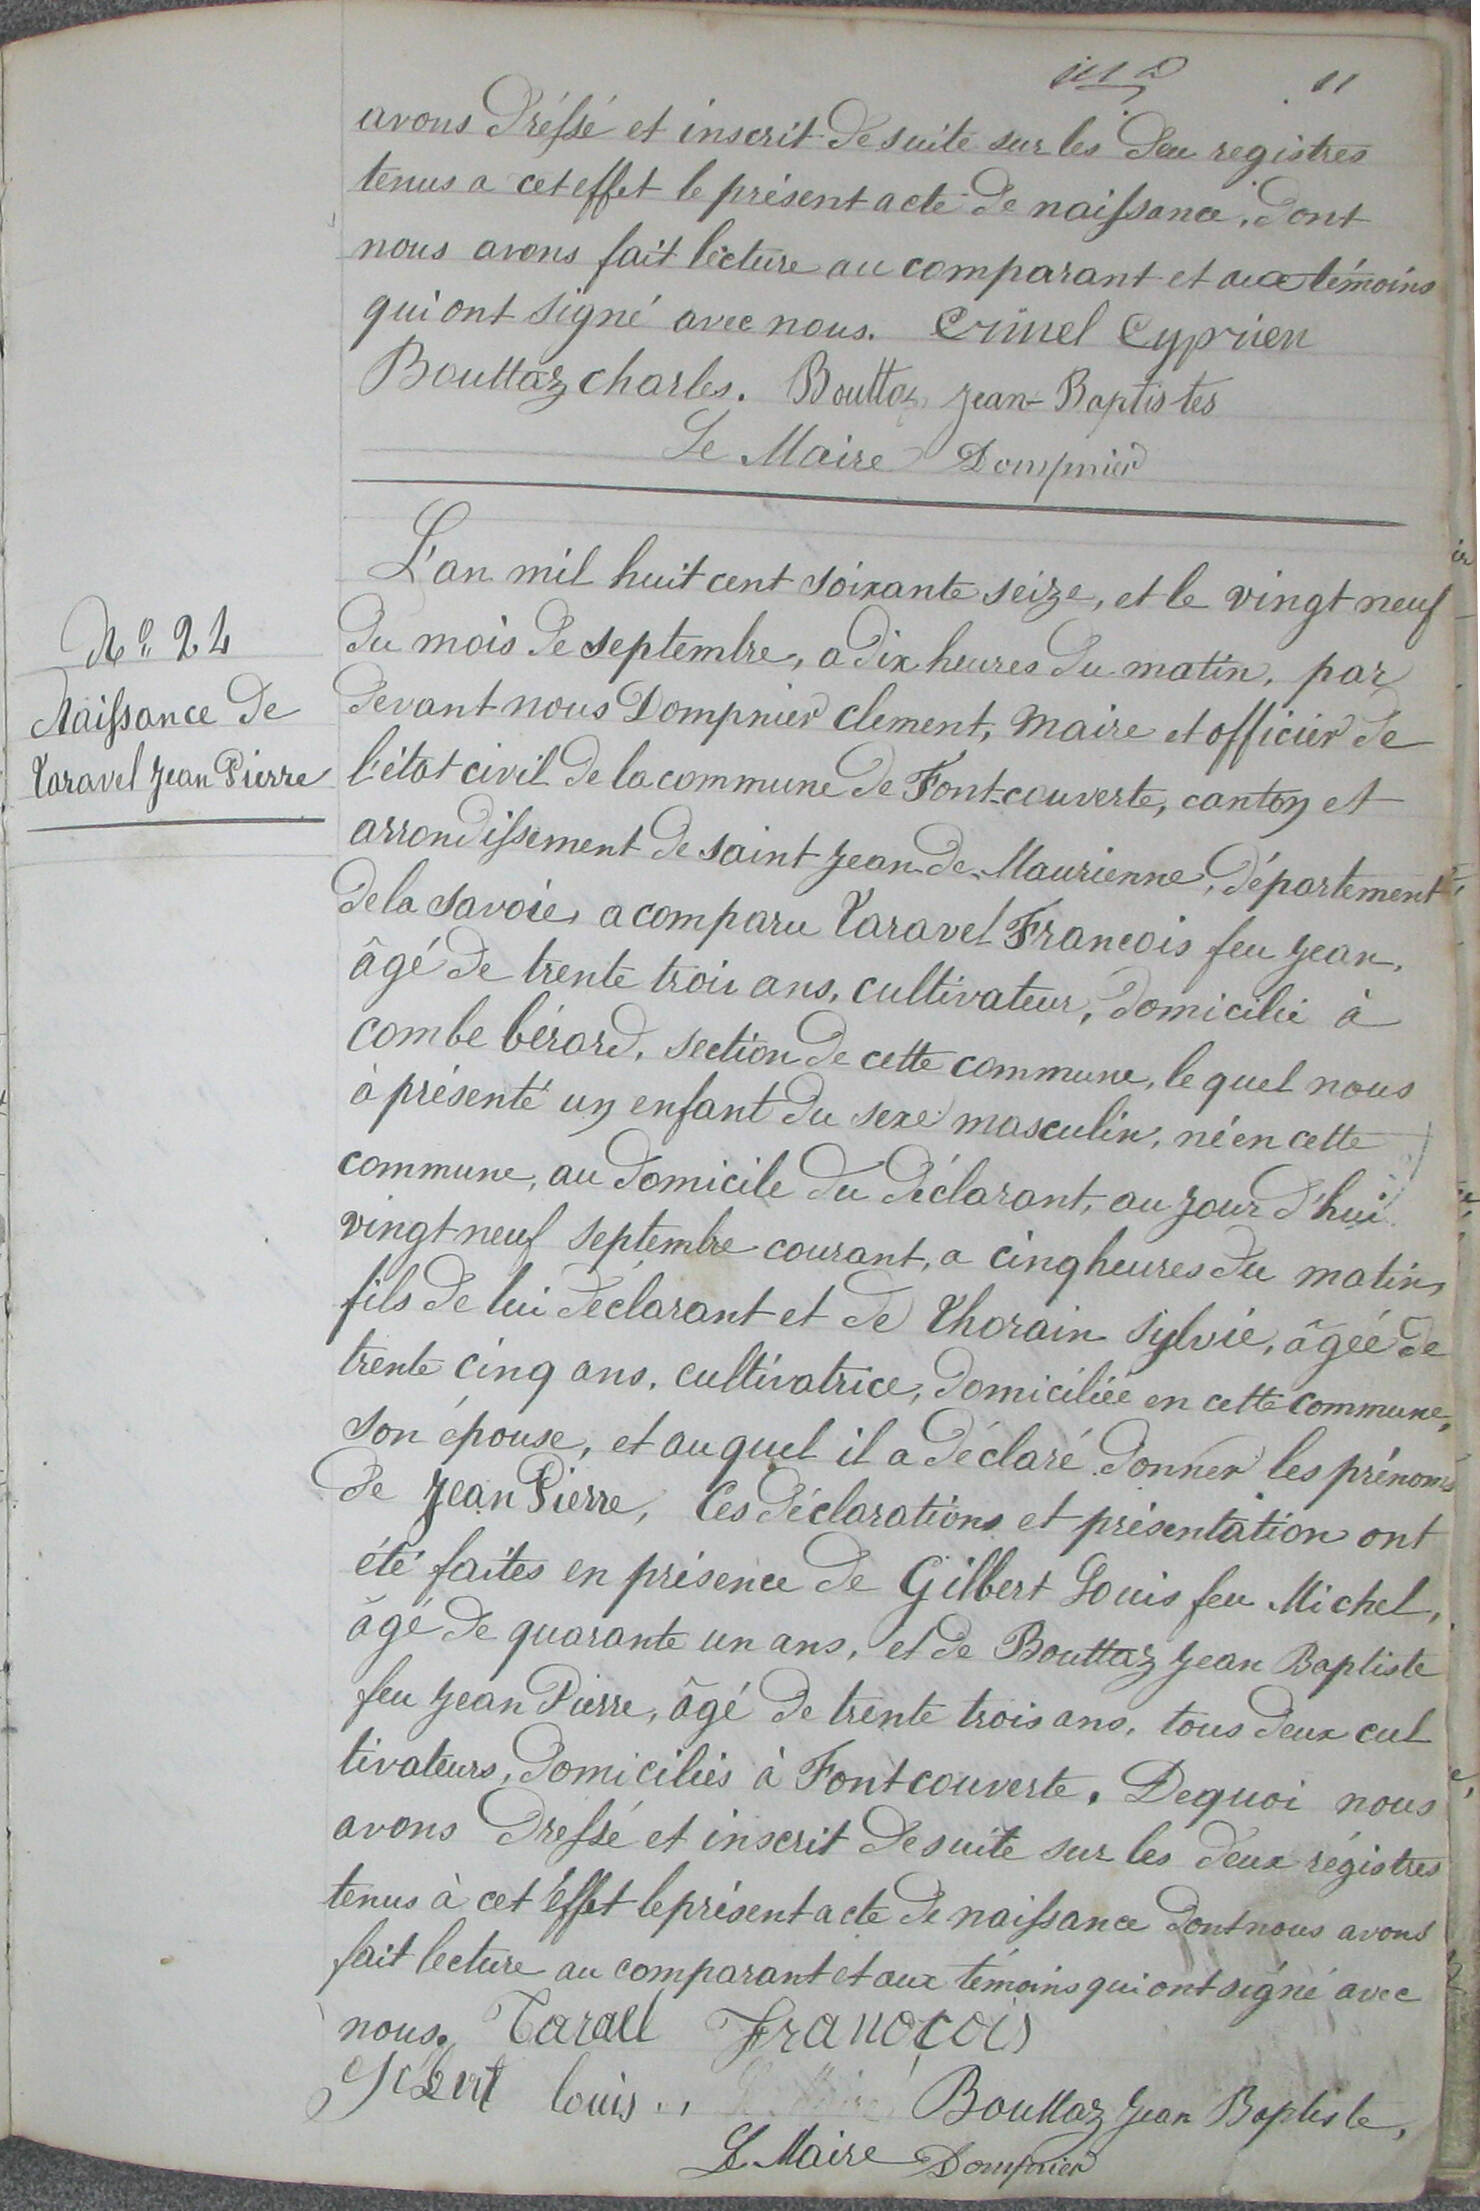 11
avons dréssé et inscrit de suite sur les deu registres
tenus a cet effet le présent acte de naissance, dont
nous avons fait lecture au comparant et aux témoins
qui ont signé avec nous. Crinel Cyprien
Bouttaz charles. Bouttaz jean-Baptistes
Le Maire Dompnier
L'an mil huit cent soixante seize, et le vingt neuf
du mois de septembre, a dix heures du matin, par
devant nous Dompnier clement, maire et officier de
l'état civil de la commune de Font-couverte, canton et
arrondissement de saint jean-de-Maurienne, département
de la savoie, a comparu Taravel Francois feu jean,
âgé de trente trois ans, cultivateur, domicilié à
combe bérard, section de cette commune, le quel nous
à présenté un enfant du sexe masculin, né en cette
commune, au domicile du déclarant, au jour d'hui
vingt neuf septembre courant, a cinq heures du matin,
fils de lui déclarant et de Thorain sylvie, âgéé de
trente cinq ans, cultivatrice, domiciliée en cette commune,
son épouse, et au quel il a déclaré donner les prénoms
de jean Pierre, Ces déclarations et présentation ont
été faites en présence de Gilbert Louis feu Michel,
âgé de quarante un ans, et de Bouttaz jean Baptiste
feu jean Pierre, âgé de trente trois ans, tous deux cul
tivateurs, domiciliés à Fontcouverte. Dequoi nous
avons dressé et inscrit de suite sur les deux régistres
tenus à cet éffet le présent acte de naissance dont nous avons
fait lecture au comparant et aux témoins qui ont signé avec
nous. Tarall Franocois
louis Bouttaz jean Baptiste,
Le Maire Dompnier
N° 24
Naissance de
Taravel jean Pierre